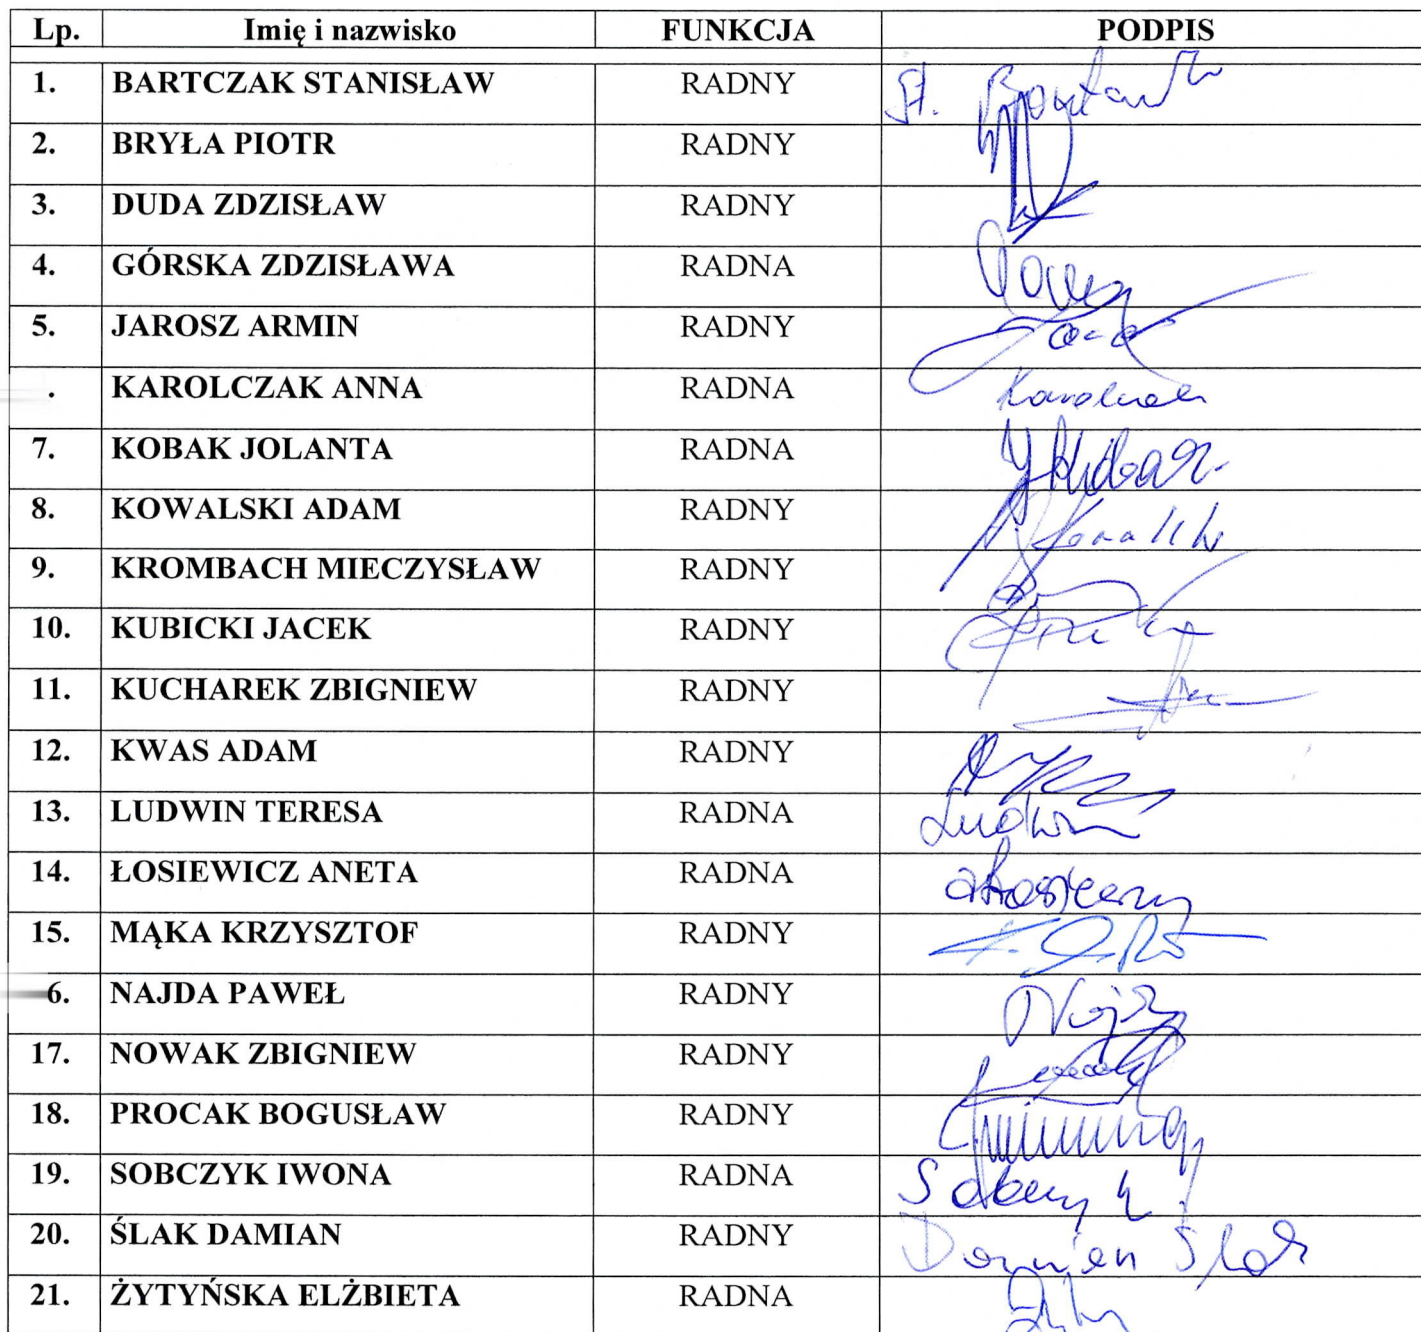 Lp. Imię i nazwisko FUNKCJA PODPIS
1. BARTCZAK STANISŁAW RADNY St. Bartczak
2. BRYŁA PIOTR RADNY
3. DUDA ZDZISŁAW RADNY
4. GÓRSKA ZDZISŁAWA RADNA
5. JAROSZ ARMIN RADNY
. KAROLCZAK ANNA RADNA Karolczak
7. KOBAK JOLANTA RADNA J Kobak
8. KOWALSKI ADAM RADNY A. Kowalski
9. KROMBACH MIECZYSŁAW RADNY
10. KUBICKI JACEK RADNY
11. KUCHAREK ZBIGNIEW RADNY
12. KWAS ADAM RADNY
13. LUDWIN TERESA RADNA Ludwin
14. ŁOSIEWICZ ANETA RADNA
15. MĄKA KRZYSZTOF RADNY
6. NAJDA PAWEŁ RADNY
17. NOWAK ZBIGNIEW RADNY
18. PROCAK BOGUSŁAW RADNY
19. SOBCZYK IWONA RADNA Sobczyk
20. ŚLAK DAMIAN RADNY Damian Ślak
21. ŻYTYŃSKA ELŻBIETA RADNA